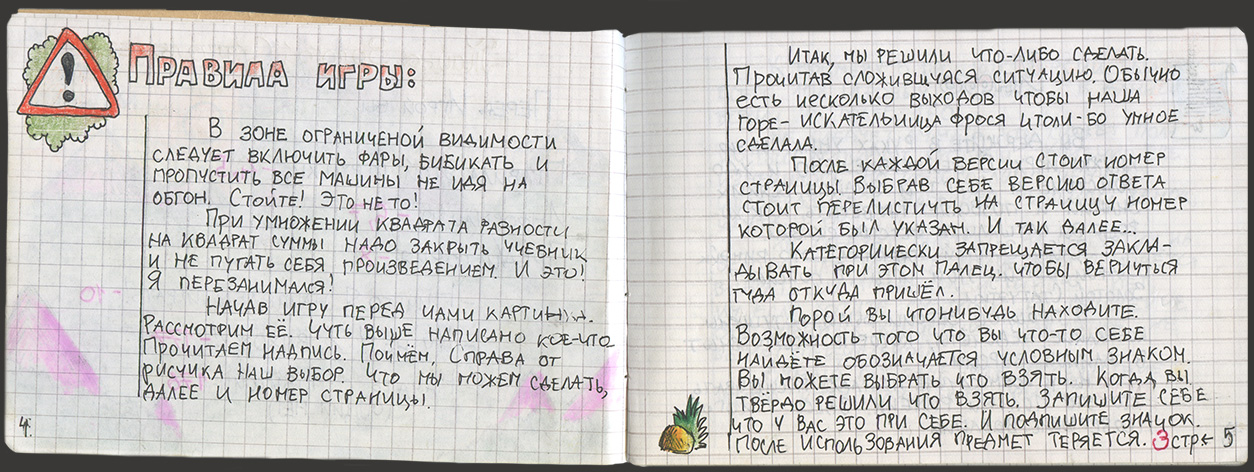 Правила игры:
В зоне ограниченой видимости
следует включить фары, бибикать и
пропустить все машины не идя на
обгон. Стойте! Это не то!
При умножении квадрата разности
на квадрат суммы надо закрыть учебник
и не пугать себя произведением. И это!
Я перезанимался!
Начав игру перед нами картинка.
Рассмотрим её. Чуть выше написано кое-что
Прочитаем надпись. Поймём, Справа от
рисунка наш выбор. Что мы можем сделать,
далее и номер страницы.
4.
Итак, мы решили что-либо сделать.
Прочитав сложившуюся ситуацию. Обычно
есть несколько выходов чтобы наша
горе-искательница Фрося чтоли-бо умное
сделала.
После каждой версии стоит номер
страницы. Выбрав себе версию ответа
стоит перелистнуть на страницу номер
которой был указан. И так далее...
Категорически запрещается закла-
дывать при этом палец. Чтобы вернуться
туда откуда пришёл.
Порой вы чтонибудь находите.
Возможность того что вы что-то себе
найдёте обозначается условным знаком.
Вы можете выбрать что взять. Когда вы
твёрдо решили что взять. Запишите себе
что у вас это при себе. И подпишите значок.
После использования предмет теряется. 3стр← 5